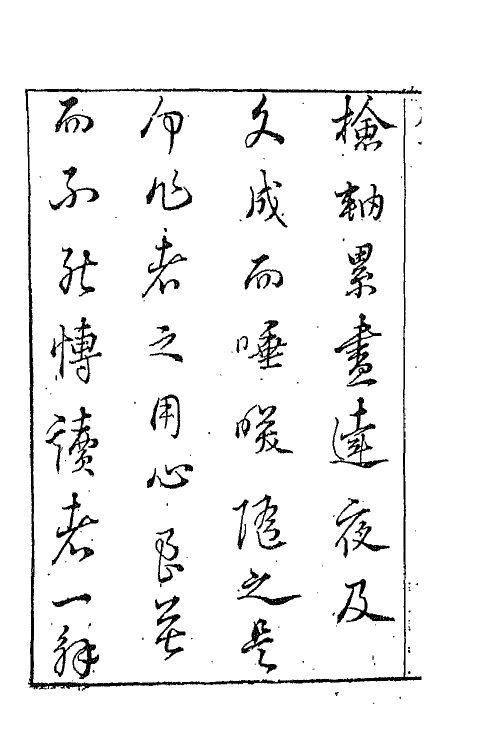 檢軸累晝達夜及
文成而唾隨之是
何作者之用心良苦
而不能博讀者一解